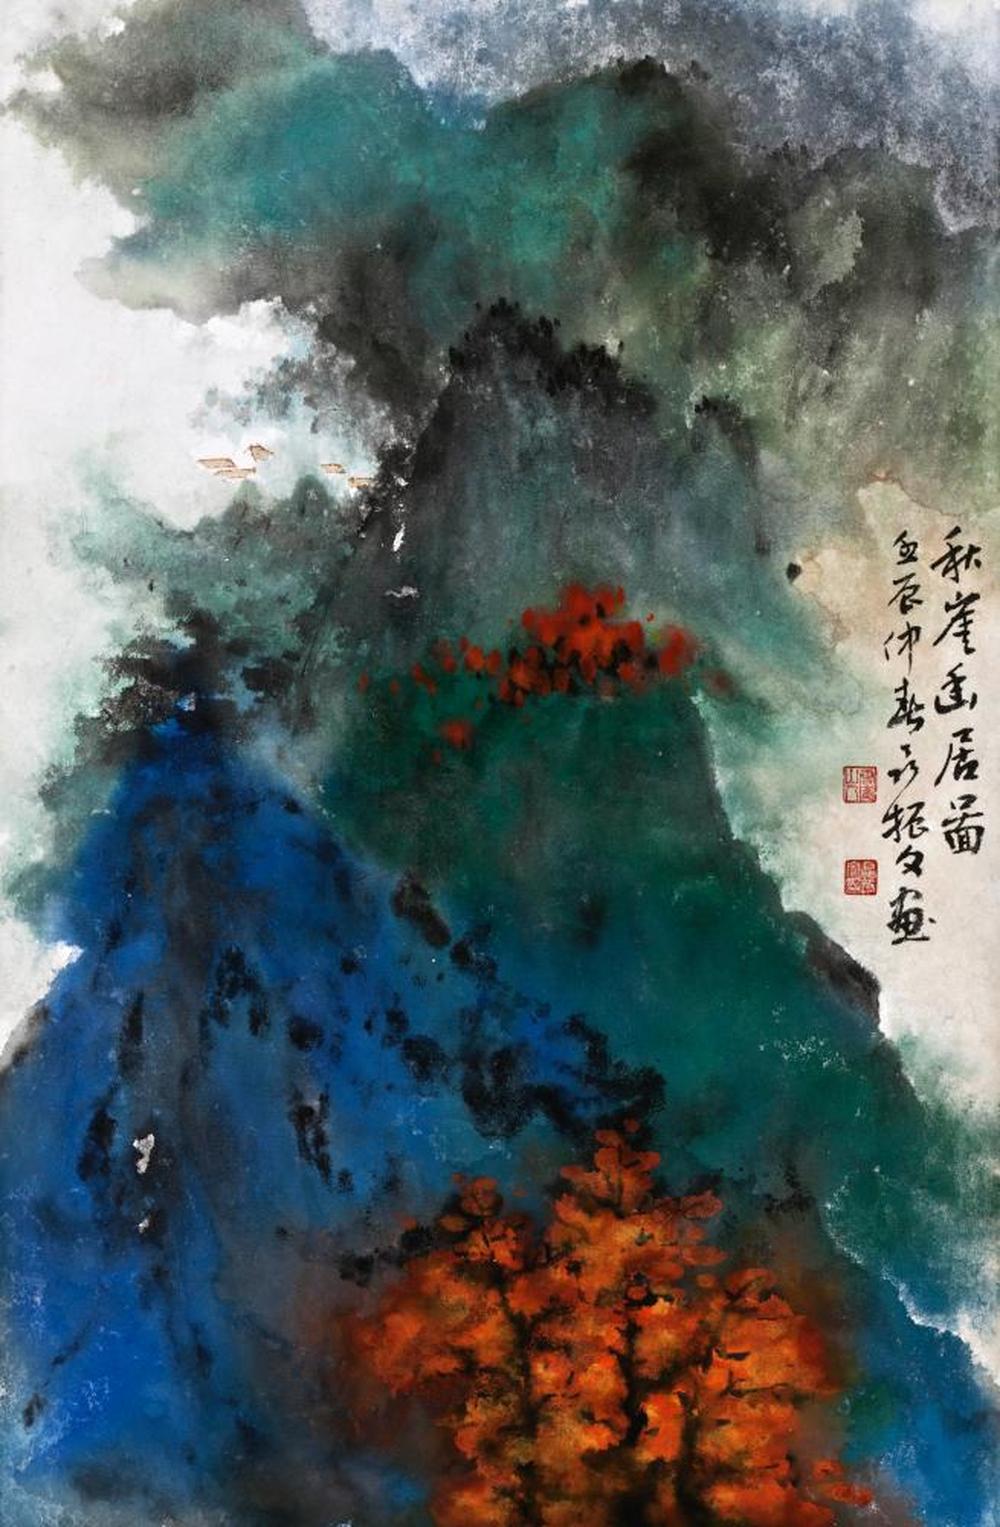 秋崖幽居圖
壬辰仲春振文畫